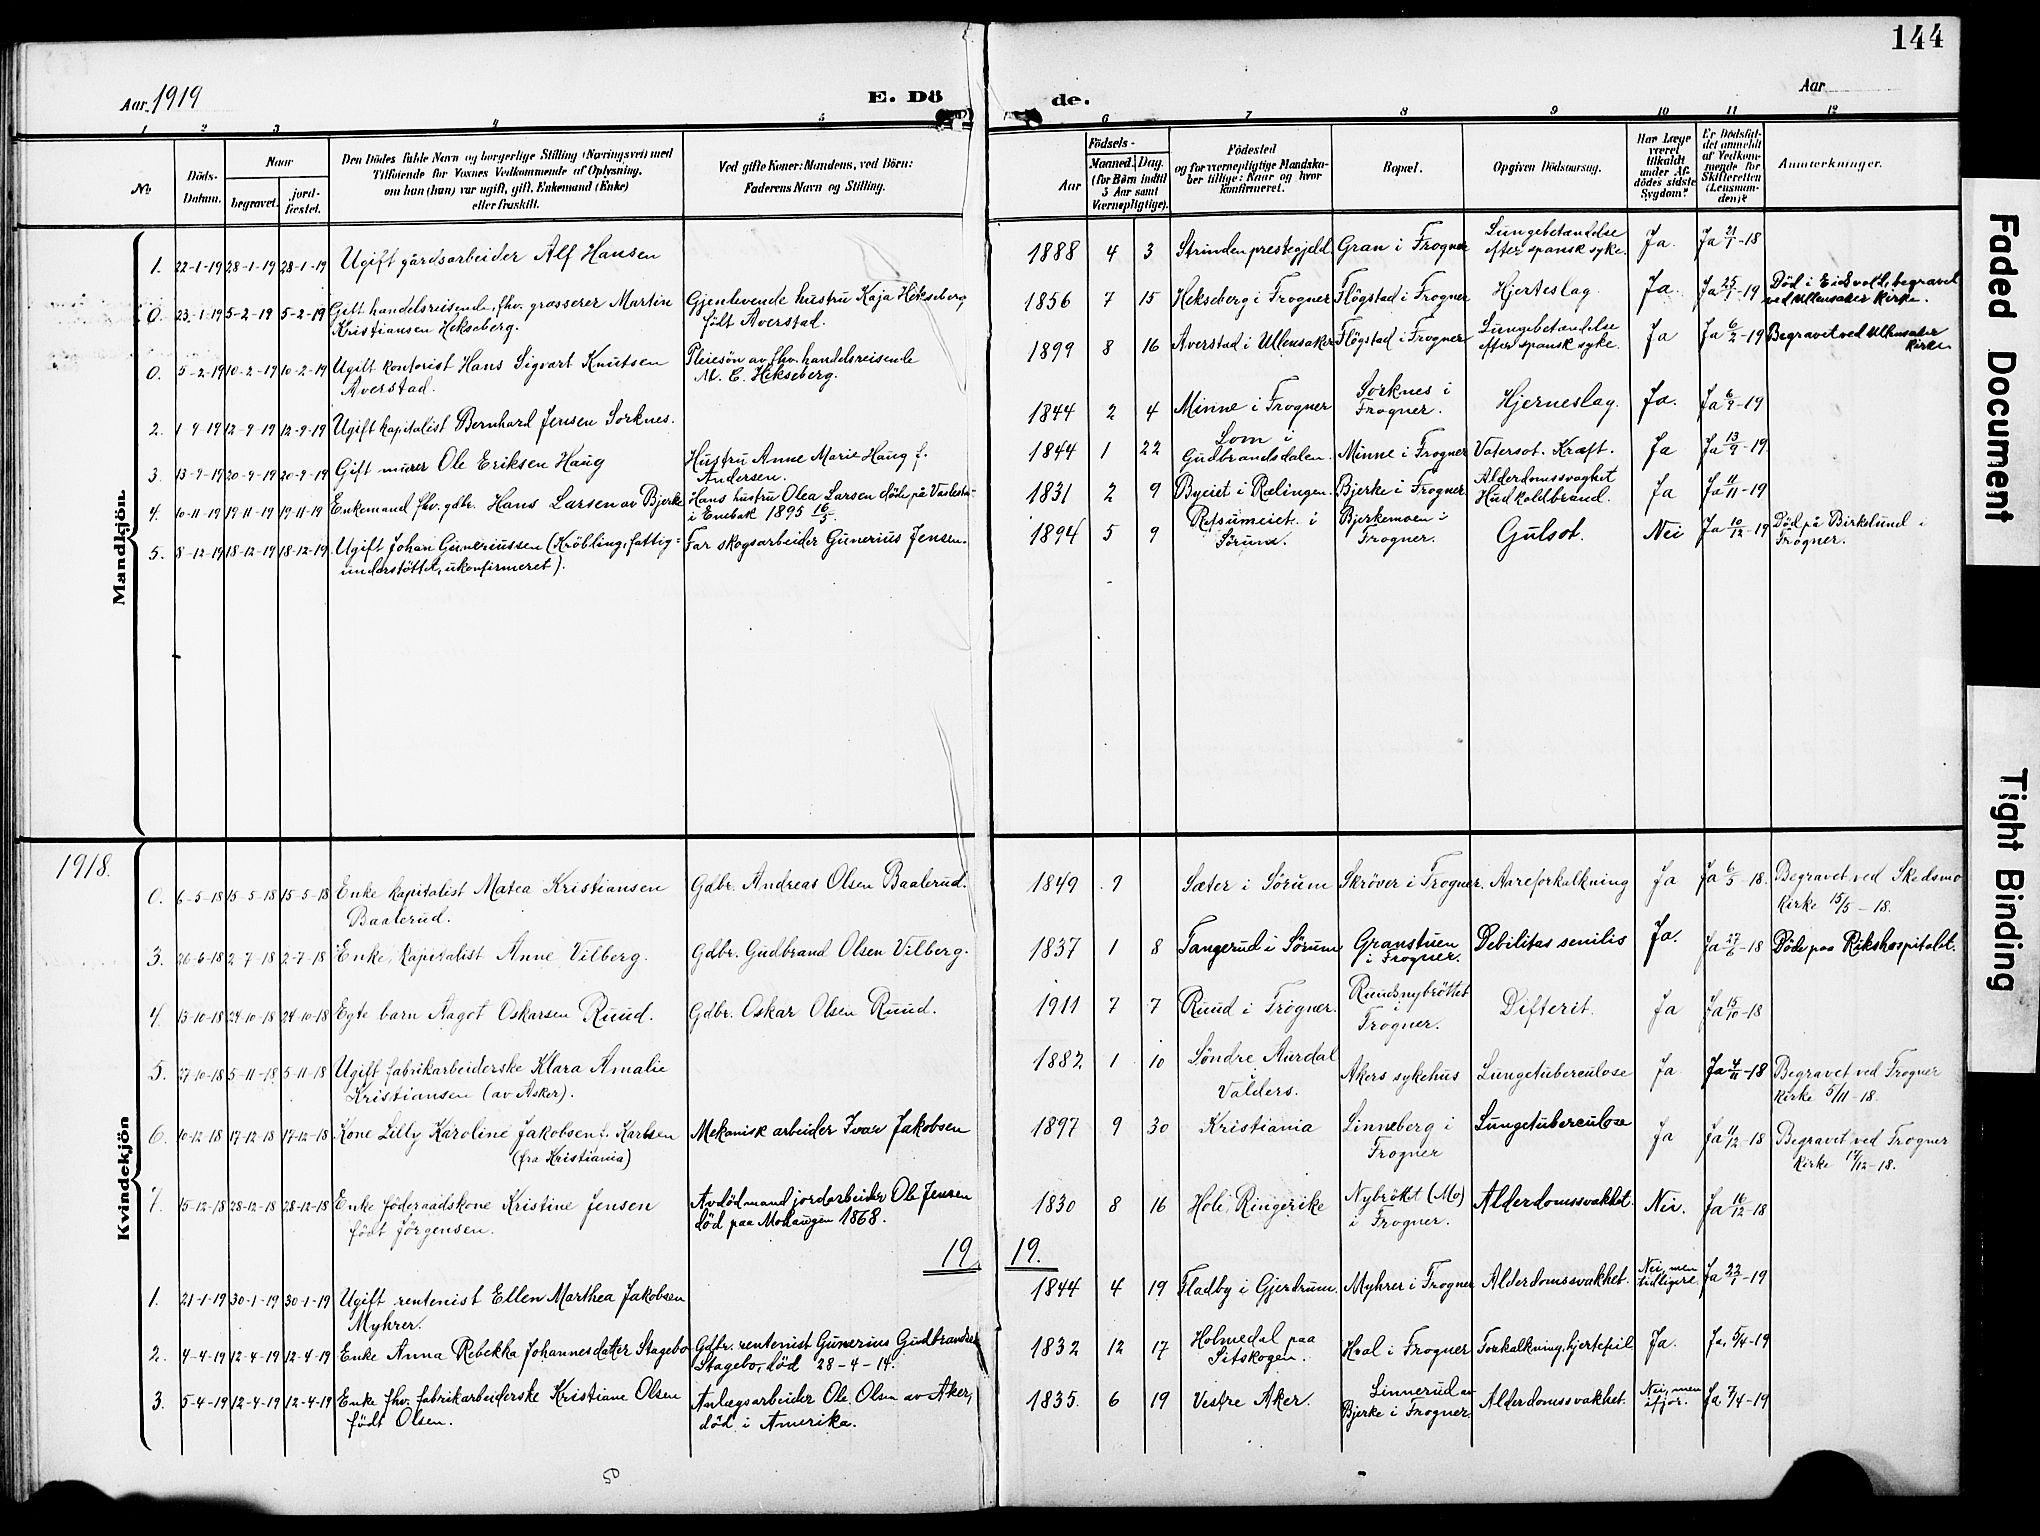 144
Aar 1919
E. Dö de.
Aar
1 2 3 4 5 6 7 8 9 10 11 12
No
Döds-
Datum.
Naar
begravet.
jord-
fæstet.
Den Dödes fulde Navn og borgerlige Stilling (Næringsvei) med
Tilföiende for Voxnes Vedkommende af Oplysning,
om han (hun) var ugift, gift, Enkemand (Enke)
eller fraskilt.
Ved gifte Koner: Mandens, ved Börn:
Faderens Navn og Stilling.
Födsels-
Aar
Maaned. Dag.
(for Börn indtil
5 Aar samt
Værnepligtige).
Födested
og for værnepligtige Mandska-
ber tillige: Naar og hvor
konfirmeret.
Bopæl.
Opgiven Dödsaarsag.
Har Læge
været
tilkaldt
under Af-
dödes sidste
Sygdom?
Er Dödsfal-
det anmeldt
af Vedkom-
mende for
Skifteretten
(Lensman-
den)?
Anmærkninger.
Mandkjön
1. 22-1-19 28-1-19 28-1-19 Ugift gårdsarbeider Alf Hansen 1888 4 3 Strinden prestegjeld Gran i Frogner Lungebetændelse
efter spansk syke. Ja. Ja 21/1-18
0. 23-1-19 5-2-19 5-2-19 Gift handelsreisende, fhv. grosserer Martin
Kristiansen Hekseberg. Gjenlevende hustru Kaja Hekseberg
født Averstad. 1856 7 15 Hekseberg i Frogner Flögstad i Frogner Hjerteslag. Ja. Ja 25/1-19 Död i Eidsvold, begravet
ved Ullensaker kirke.
0. 5-2-19 10-2-19 10-2-19 Ugift kontorist Hans Sigvart Knutsen
Averstad. Pleiesön av fhv. handelsreisende
M. C. Hekseberg. 1899 8 16 Averstad i Ullensaker Flögstad i Frogner Lungebetændelse
efter spansk syke. Ja Ja 6/2-19 Begravet ved Ullensaker
kirke
2. 1-9-19 12-9-19 12-9-19 Ugift kapitalist Bernhard Jensen Sorknes. 1844 2 4 Minne i Frogner Sorknes i
Frogner. Hjerneslag. Ja. Ja 6/9-19
3. 13-9-19 20-9-19 20-9-19 Gift murer Ole Eriksen Haug Hustru Anne Marie Haug f.
Andersen. 1844 1 22 Lom i
Gudbrandsdalen. Minne i Frogner Vatersot. Kræft. Ja Ja 13/9-19.
4. 10-11-19 19-11-19 19-11-19 Enkemand fhv. gdbr. Hans Larsen av Bjerke Hans hustru Olea Larsen döde på
i Enebak 1895 16/5. 1831 2 9 Byeiet i Rælingen. Bjerke i Frogner. Alderdomssvaghet
Hudkoldbrand. Ja Ja 11/11-19
5. 8-12-19 18-12-19 18-12-19 Ugift Johan Guneriussen (Kröbling, fattig-
understöttet, ukonfirmeret). Far skogsarbeider Gunerius Jensen. 1894 5 9 Refsumeiet i
Sörum. Bjerkemoen i
Frogner. Gulsot. Nei Ja 10/12-19 Död på Birkelund i
Frogner.
Kvindekjön
1918.
0. 6-5-18 15-5-18 15-5-18 Enke kapitalist Matea Kristiansen
Baalerud. Gdbr. Andreas Olsen Baalerud. 1849 9 Sæter i Sörum Skröver i Frogner. Aareforkalkning Ja Ja 6/5-18. Begravet ved Skedsmo
kirke 15/5-18.
3. 26-6-18 2-7-18 2-7-18 Enke, kapitalist Anne Vilberg. Gdbr. Gudbrand Olsen Vilberg. 1837 1 8 Tangerud i Sörum Granstuen
i Frogner. Debilitas senilis Ja. Ja 27/6-18 Döde paa Rikshospitalet.
4. 13-10-18 24-10-18 24-10-18 Egte barn Aagot Oskarsen Ruud. Gdbr. Oskar Olsen Ruud. 1911 7 7 Ruud i Frogner. Ruudsnybröttet
i
Frogner. Difterit. Ja Ja 15/10-18
5. 27-10-18 5-11-18 5-11-18 Ugift fabrikarbeiderske Klara Amalie
Kristiansen (av Asker). 1882 1 10 Söndre Aurdal
i
Valders. Akers sykehus Lungetuberculose Ja Ja 4/11-18 Begravet ved Frogner
kirke 5/11-18.
6. 10-12-18 17-12-18 17-12-18 Kone Lilly Karoline Jakobsen f. Karlsen
(fra Kristiania) Mekanisk arbeider Ivar Jakobsen 1897 9 30 Kristiania Linneberg i
Frogner Lungetuberculose Ja Ja 11/12-18 Begravet ved Frogner
kirke 17/12-18.
7. 15-12-18 28-12-18 28-12-18 Enke föderaadskone Kristine Jensen
födt Jörgensen. Avdöd mand jordarbeider Ole Jensen
död paa Mohaugen 1868. 1830 8 16 Hole, Ringerike Nybröttet (Mo)
i Frogner. Alderdomssvakhet. Nei. Ja 16/12-18
19 19.
1. 21-1-19 30-1-19 30-1-19 Ugift rentenist Ellen Marthea Jakobsen
Myhrer. 1844 4 19 Fladby i Gjerdrum. Myhrer i Frogner Alderdomssvakhet. Nei, men
tidligere Ja 22/1-19
2. 4-4-19 12-4-19 12-4-19 Enke Anna Rebekka Johannesdatter Stagebo Gdbr. rentenist Gunerius Gudbrandsen
Stagebo, død 28-4-14. 1832 12 17 Holmedal paa
Sitskogen. Hval i Frogner Forkalkning, hjertefeil Ja. Ja. 5/4-19
3. 5-4-19 12-4-19 12-4-19 Enke fhv. fabrikarbeiderske Kristiane Olsen
født Olsen. Anlægsarbeider Ole Olsen av Aker,
död i Amerika. 1835. 6 19 Vestre Aker. Linnerud av
Bjerke i Frogner Alderdomssvakhet. Nei, men
ifjor. Ja 7/4-19
Faded Document
Tight Binding